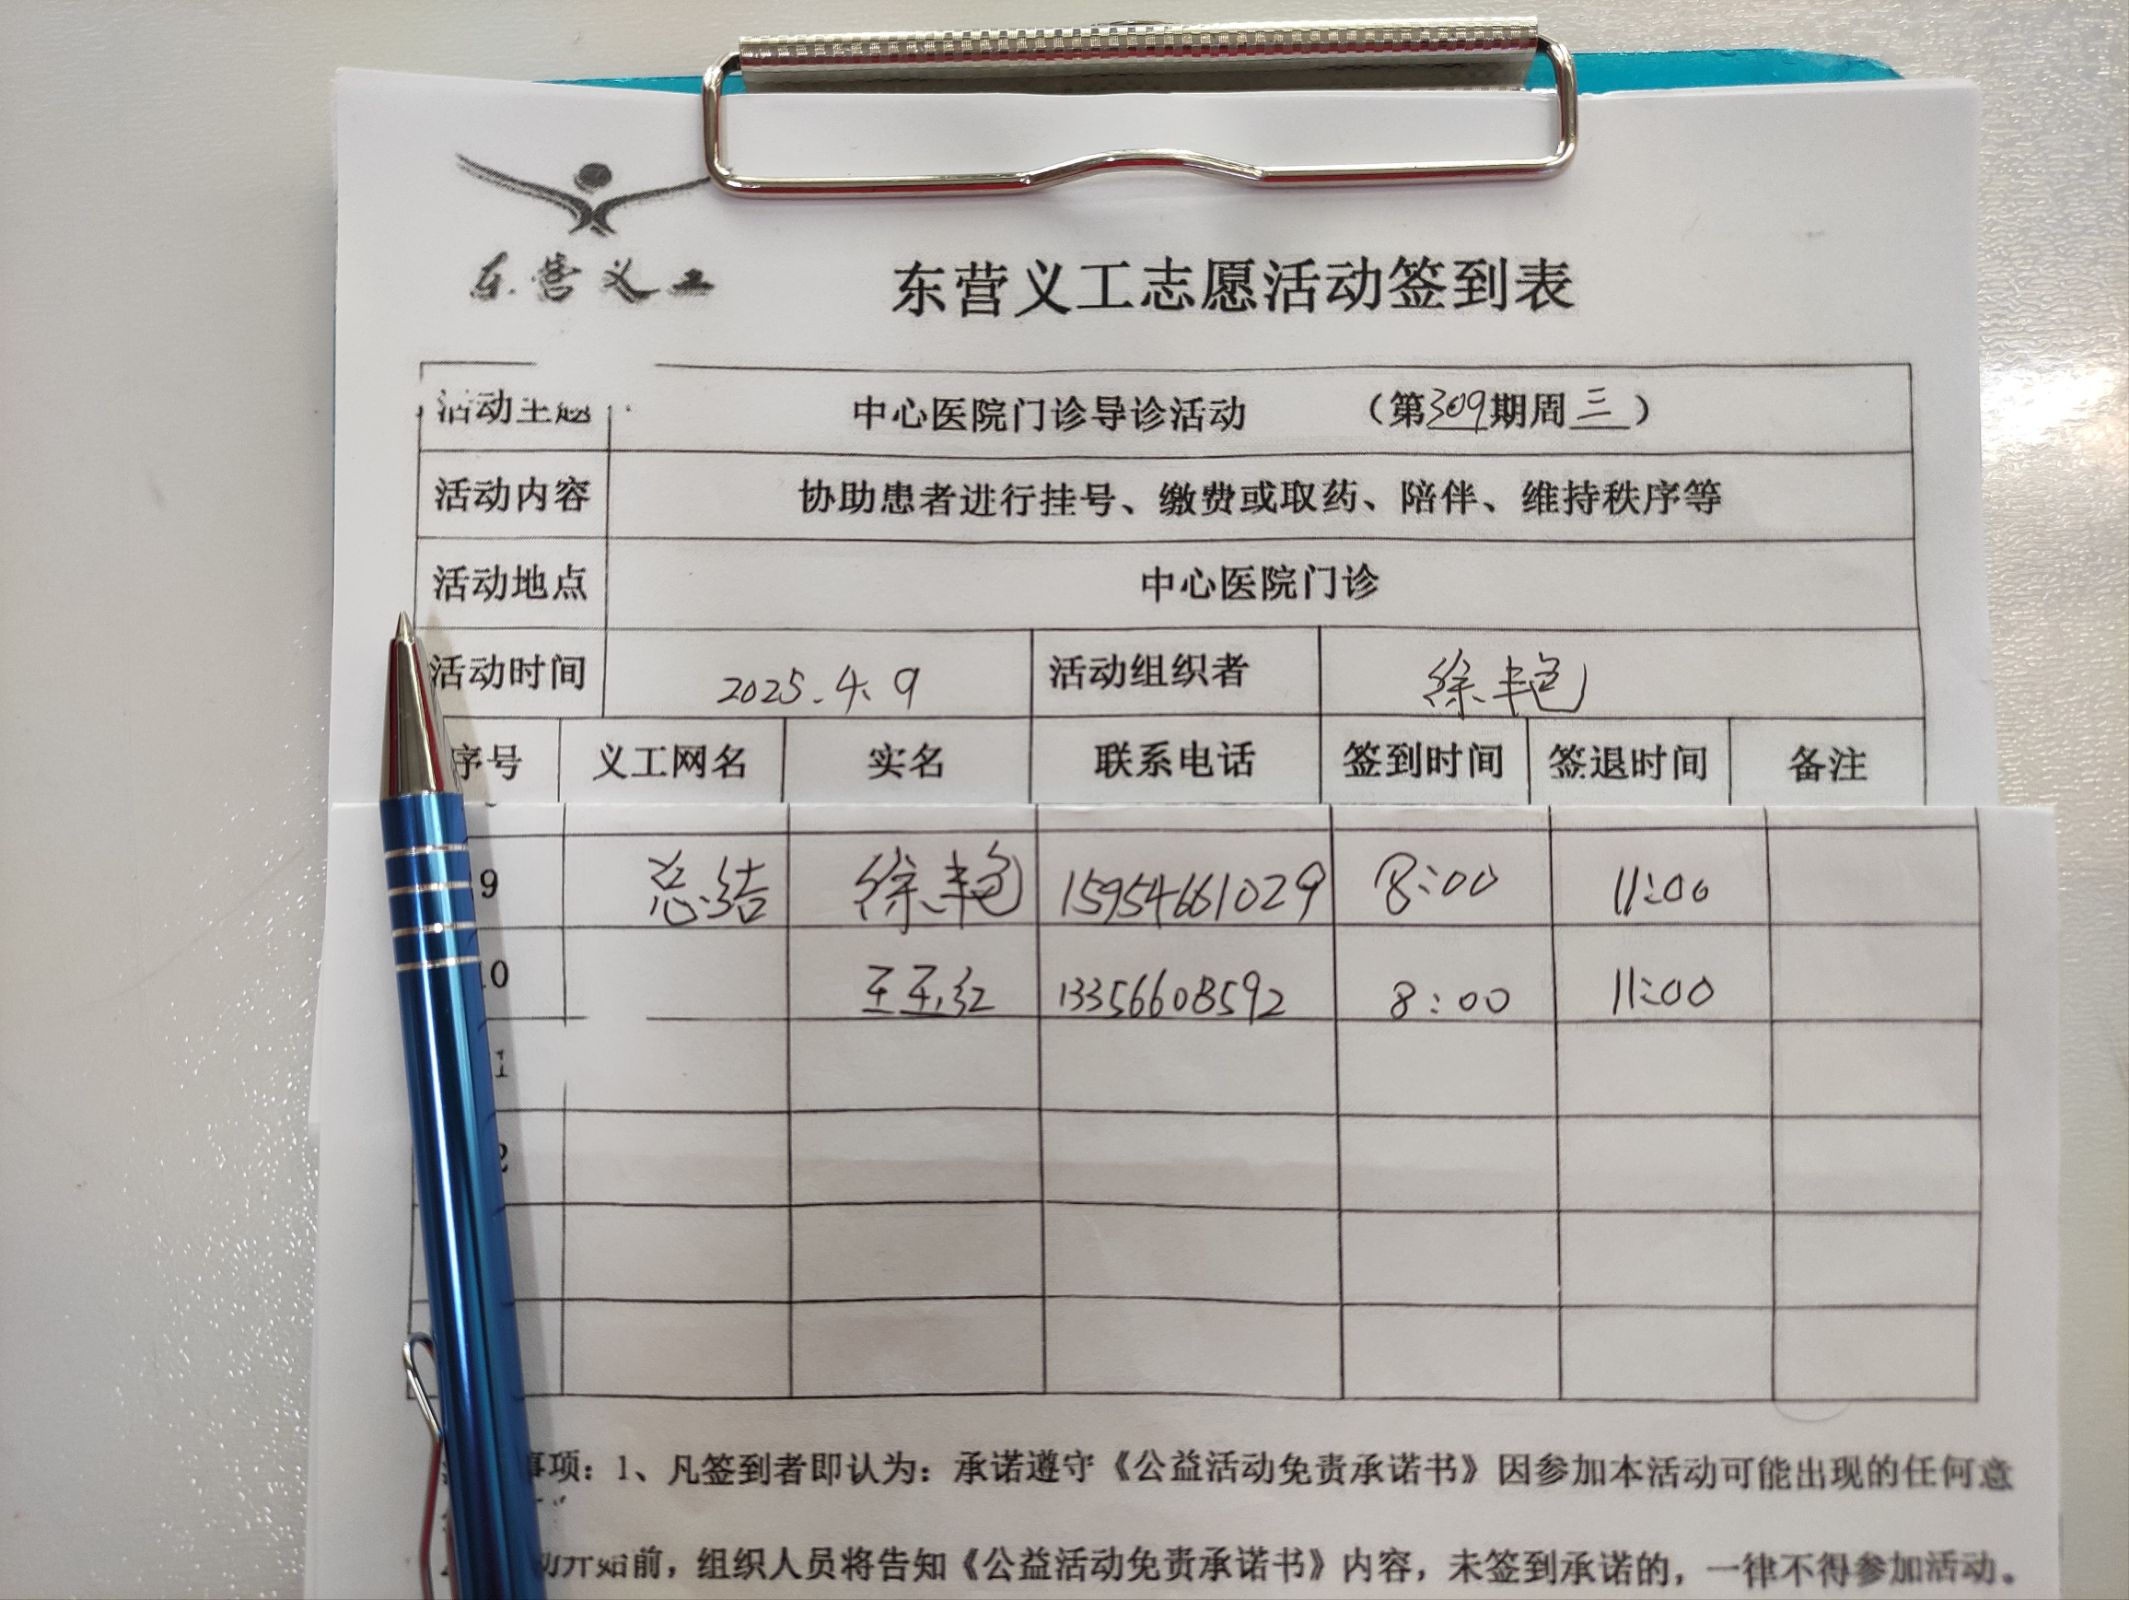 东营义工
东营义工志愿活动签到表
活动主题 中心医院门诊导诊活动 （第309期周三）
活动内容 协助患者进行挂号、缴费或取药、陪伴、维持秩序等
活动地点 中心医院门诊
活动时间 2025.4.9 活动组织者 徐丰艳
序号 义工网名 实名 联系电话 签到时间 签退时间 备注
9 总结 徐丰艳 15954661029 8:00 11:00
10 王玉红 13356608592 8:00 11:00
事项：1、凡签到者即认为：承诺遵守《公益活动免责承诺书》因参加本活动可能出现的任何意
开始前，组织人员将告知《公益活动免责承诺书》内容，未签到承诺的，一律不得参加活动。